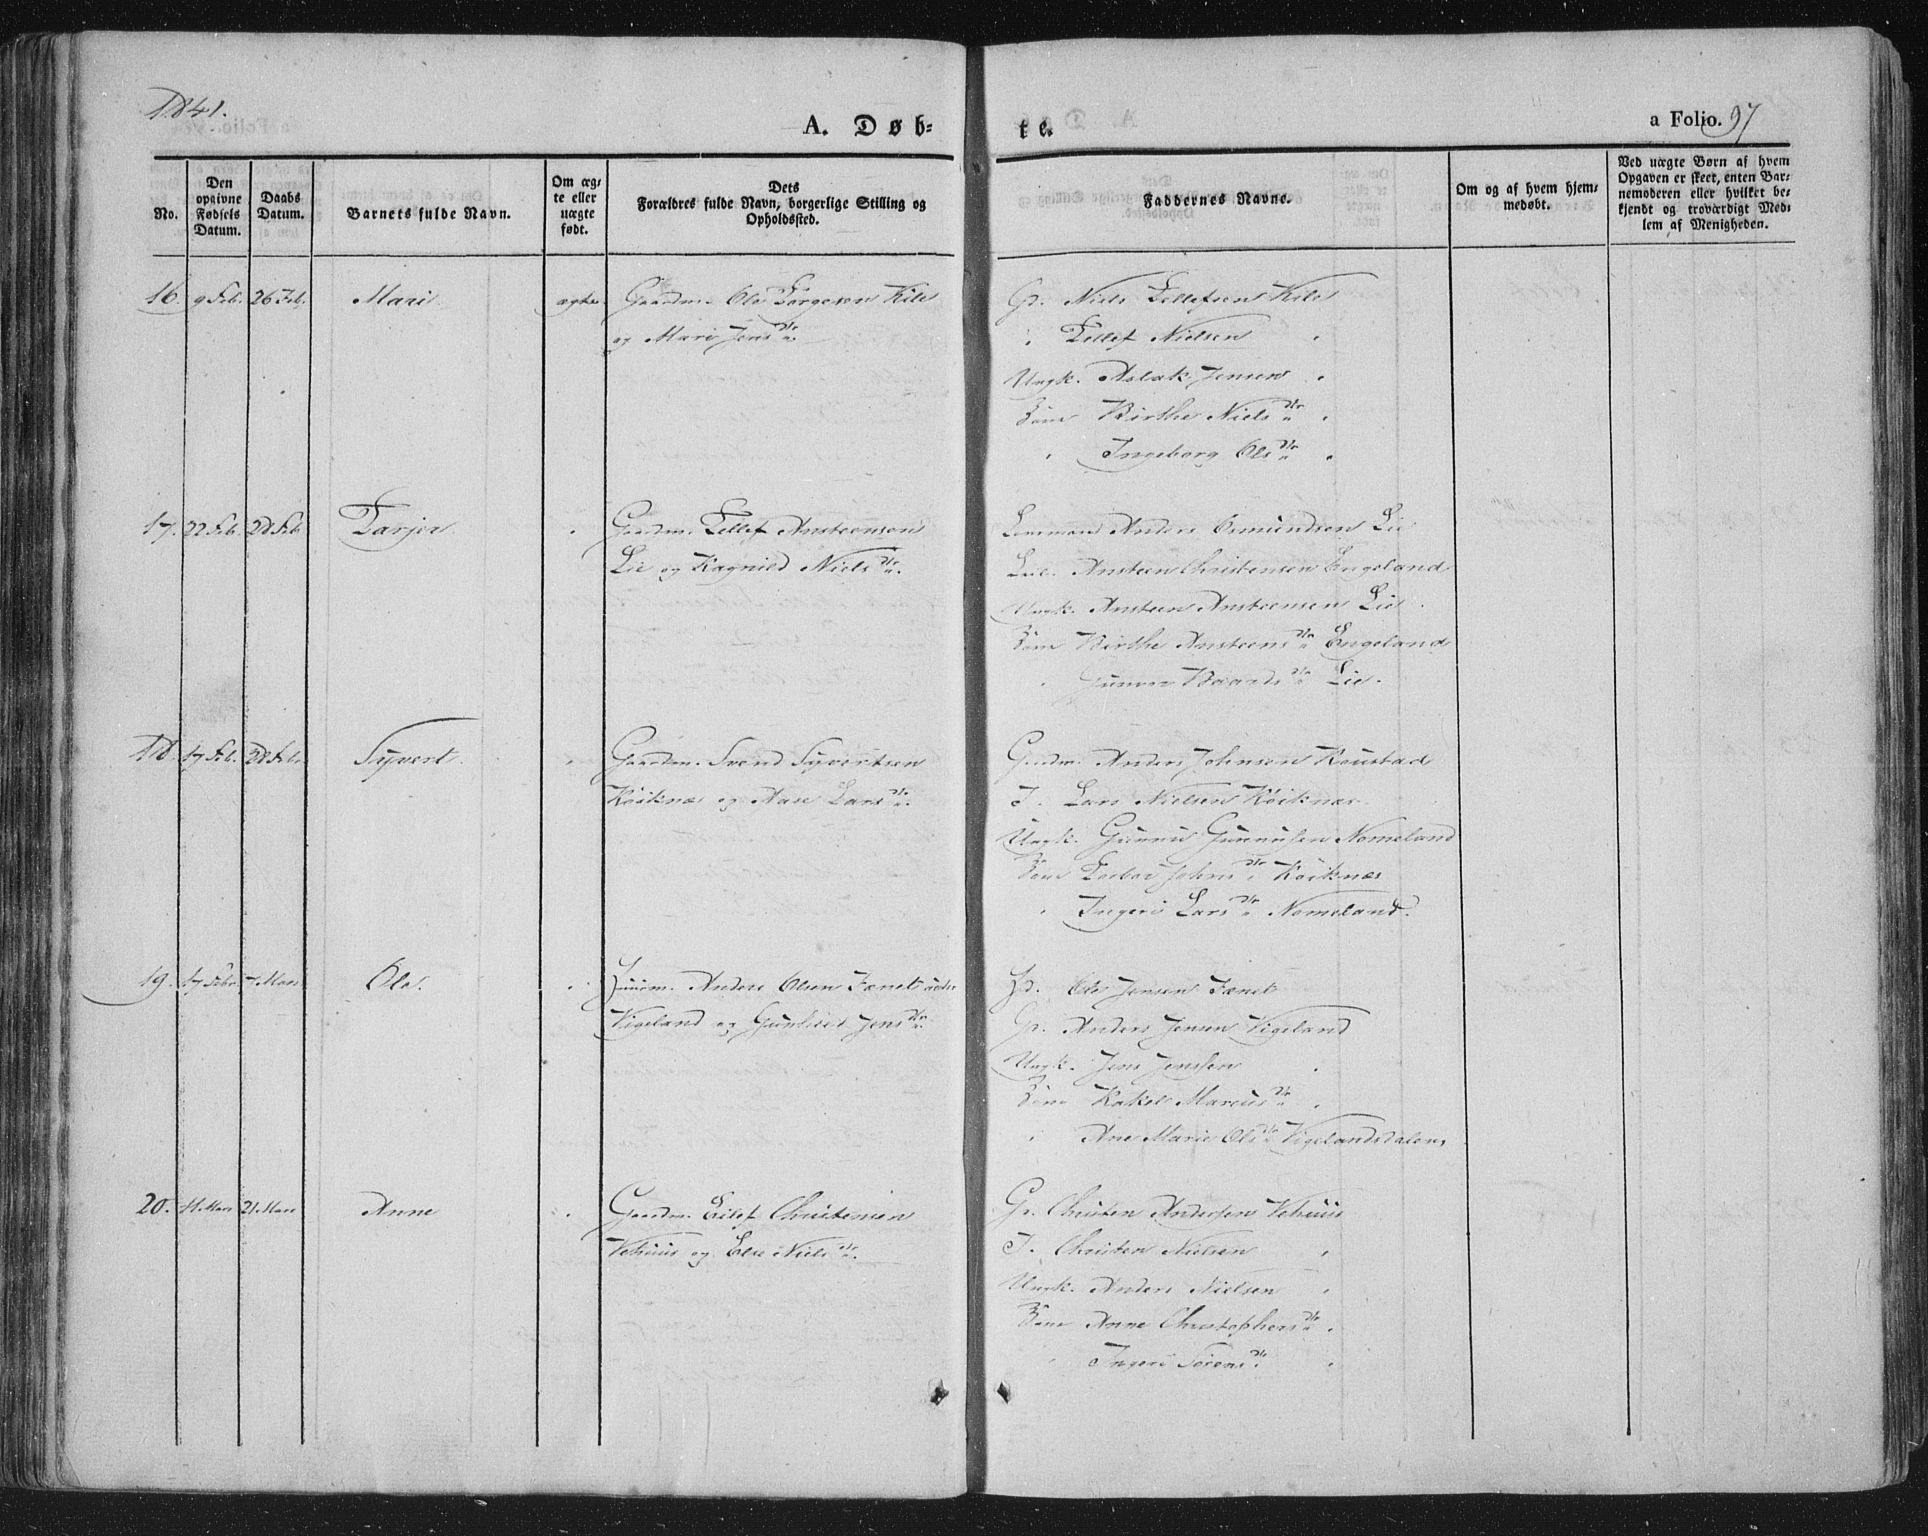 1841.
A. Døb-
te.
a Folio. 97
No.
Den
opgivne
Fødsels
Datum.
Daabs
Datum.
Barnets fulde Navn.
Om æg-
te eller
uægte
født.
Dets
Forældres fulde Navn, borgerlige Stilling og
Opholdssted.
Faddernes Navne.
Om og af hvem hjem-
medøbt.
Ved uægte Børn af hvem
Opgaven er skeet, enten Bar-
nemoderen eller hvilket be-
kjendt og troværdigt Med-
lem af Menigheden.
16. 9 Feb. 26 Feb. Mari ægte Gaardm. Ole Torgesen Kile
og Mari Jensdr.
Gr. Niels Tellefsen Kile
" Tellef Nielsen "
Ungk. Aslak Jensen "
Kone Birthe Nielsdr. "
" Ingeborg Olsdr. "
17. 22 Feb. 28 Feb Tarjer " Gaardm. Tellef Ansteensen
Lie og Ragnild Nielsdr.
Lensman Anders Osmundsen Lie
Ansteen Christensen Engeland
Ungk. Ansteen Ansteensen Lie
Kone Birthe Ansteensdr. Engeland
" Gunvor Baardsdr. Lie.
18. 17 Feb. 28 Feb. Syvert " Gaardm. Svend Syvertsen
Röiknæs og Aase Larsdr.
Gaardm. Anders Johnsen Roustad
J. Lars Nielsen Röiknæs
Ungk. Gunnu Gunnusen Nomeland
Kone Johnsdr. Röiknæs
" Ingeri Larsdr. Nomeland.
19. 17 Febr. 7 Mars Ole. " Huusm. Anders Olsen Fanet under
Vigeland og Gunhild Jensdr.
Hd. Ole Jensen Fanet
Gr. Anders Jensen Vigeland
Ungk. Jens Jenssen "
Kone Rakel Marcusdr. "
" Ane Marie Olsdr. Vigelandsdalen
20. 11 Mars 21 Mars Anne " Gaardm. Eilef Christensen
Vehuus og Else Nielsdr.
Gr. Christen Andersen Vehuus
J. Christen Nielsen "
Ungk. Anders Nielsen "
Kone Anne Christophersdr. "
" Ingeri Sörensdr. "